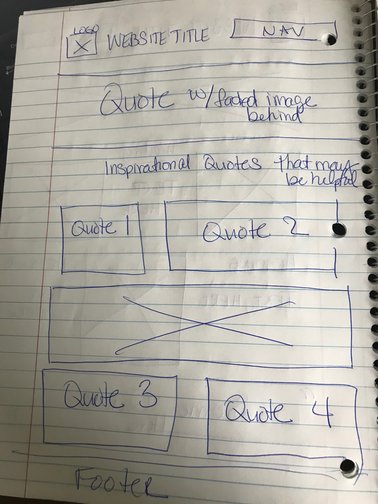 LOGO
WEBSITE TITLE
NAV
Quote w/faded image
behind
Inspirational Quotes that may
be helpful
Quote 1
Quote 2
Quote 3
Quote 4
Footer